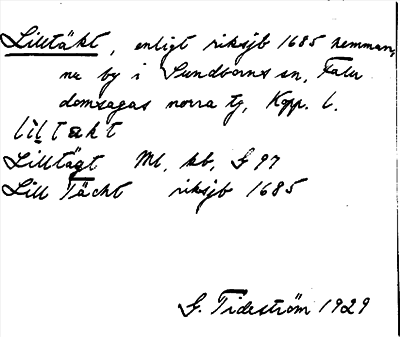 Lilltäkt, enligt riksjb 1685 hemman,
nu by i Sundborns sn, Falu
domsagas norra tg, Kopp. l.
liltakt
Lilltägt Ml, kb, G 97
Lill Täckt riksjb 1685
G. Tideström 1929